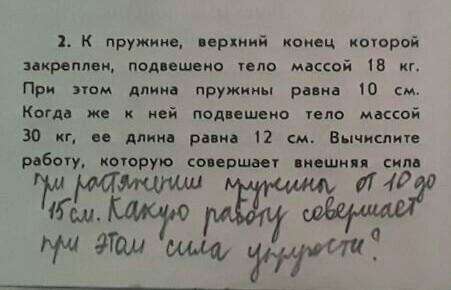 2. К пружине, верхний конец которой
закреплен, подвешено тело массой 18 кг.
При этом длина пружины равна 10 см.
Когда же к ней подвешено тело массой
30 кг, ее длина равна 12 см. Вычислите
работу, которую совершает внешняя сила
при растяжении пружины от 10 до
15 см. Какую работу совершает
при этом сила упругости?